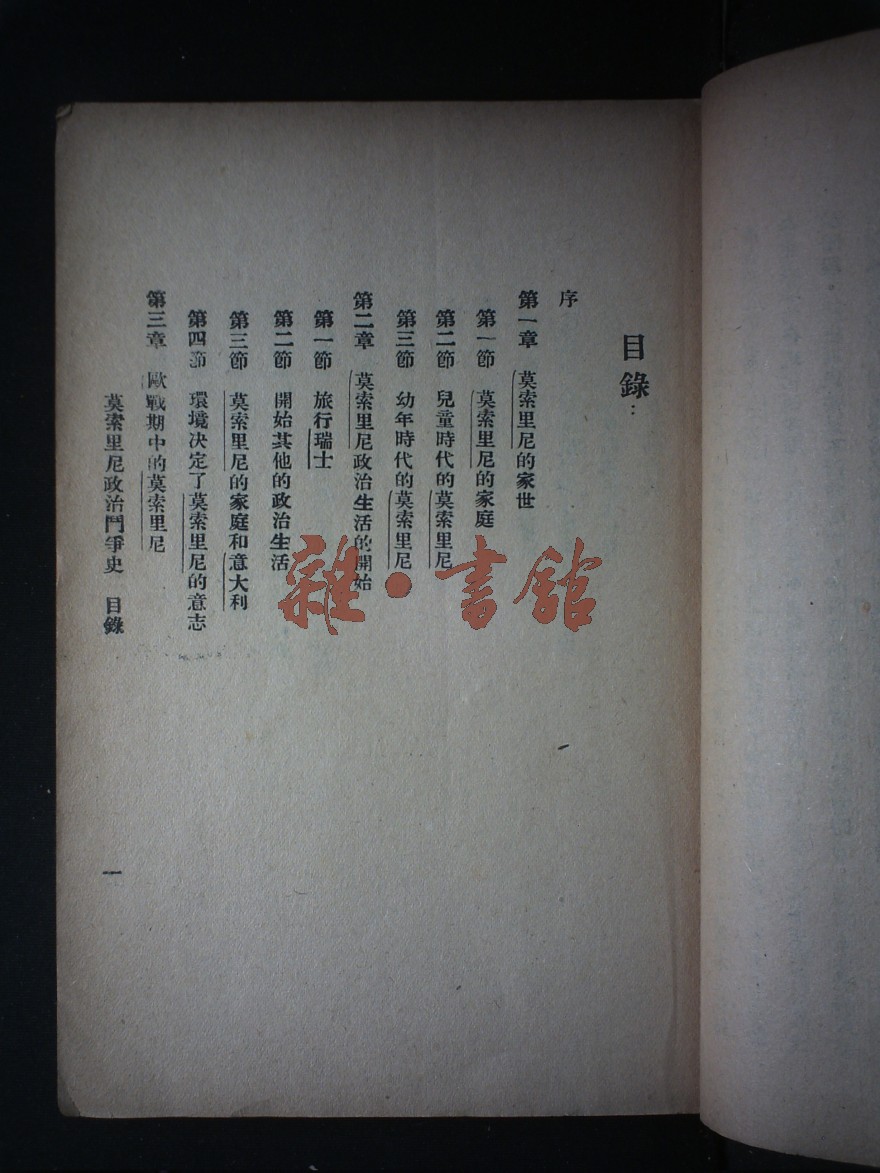 目錄：
序
第一章 莫索里尼的家世
第一節 莫索里尼的家庭
第二節 兒童時代的莫索里尼
第三節 幼年時代的莫索里尼
第二章 莫索里尼政治生活的開始
第一節 旅行瑞士
第二節 開始其他的政治生活
第三節 莫索里尼的家庭和意大利
第四節 環境決定了莫索里尼的意志
第三章 歐戰期中的莫索里尼
莫索里尼政治鬥爭史 目錄
一
雜·書館